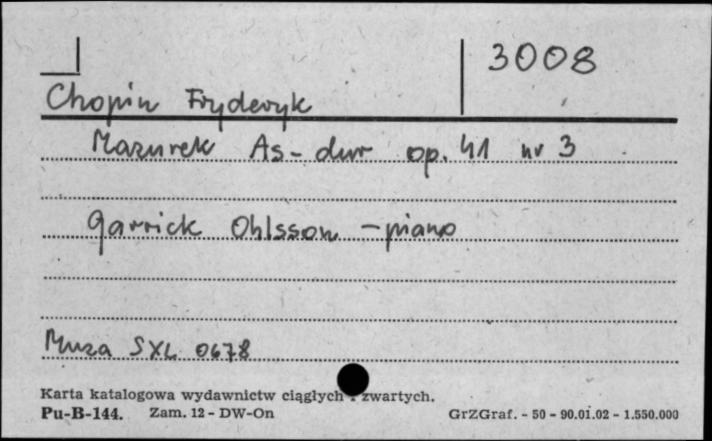 3008
Chopin Fryderyk
Mazurek As-dur op. 41 nr 3
Garrick Ohlsson - piano
Muza SXL 0678
Karta katalogowa wydawnictw ciągłych i zwartych.
Pu-B-144. Zam. 12 - DW-On GrZGraf. - 50 - 90.01.02 - 1.550.000